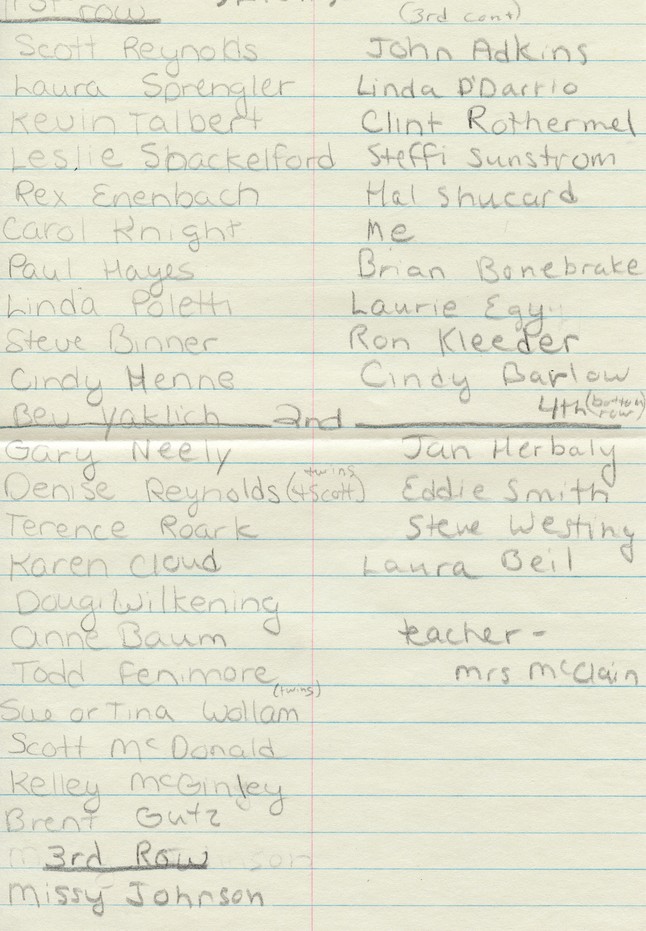 1st row
Scott Reynolds
Laura Sprengler
Kevin Talbert
Leslie Shackelford
Rex Enenbach
Carol Knight
Paul Hayes
Linda Poletti
Steve Binner
Cindy Henne
Bev Yaklich
2nd
Gary Neely
Denise Reynolds (+Scott) twins
Terence Roark
Karen Cloud
Doug Wilkening
Anne Baum
Todd Fenimore
(twins)
Sue or Tina Wollam
Scott McDonald
Kelley McGinley
Brent Gutz
3rd Row
Missy Johnson
(3rd cont)
John Adkins
Linda D'Darrio
Clint Rothermel
Steffi Sunstrom
Hal Shucard
Me
Brian Bonebrake
Laurie Egy
Ron Kleeder
Cindy Barlow
4th (bottom row)
Jan Herbaly
Eddie Smith
Steve Westing
Laura Beil
teacher -
Mrs McClain